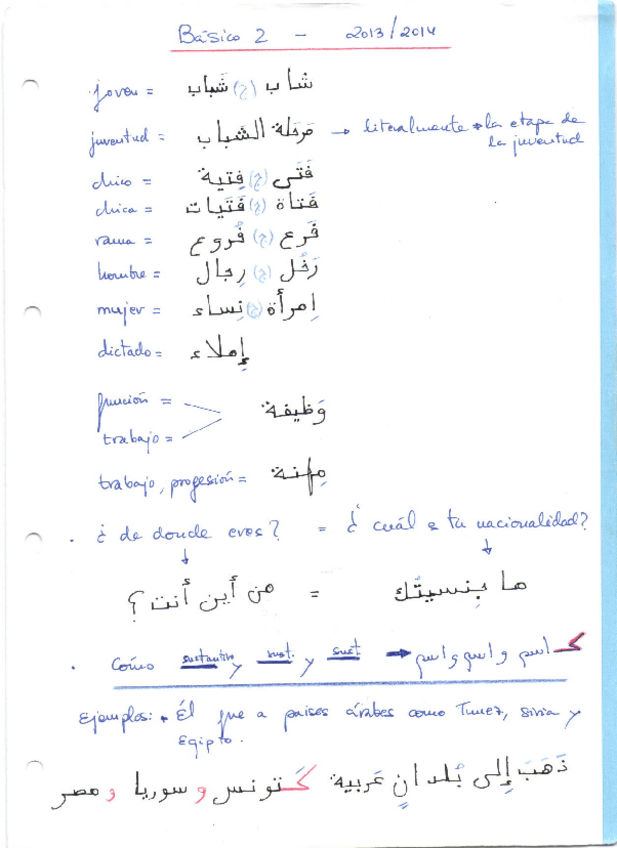 Básico 2 - 2013/2014
joven = شاب (ج) شَباب
juventud = مَرحَلة الشَباب → literalmente → la etapa de
la juventud
chico = فَتَى (ج) فِتية
chica = فَتاة (ج) فَتَيات
rama = فَرع (ج) فُروع
hombre = رَجُل (ج) رِجال
mujer = اِمرأة (ج) نِساء
dictado = إملاء
función =
trabajo = وَظيفة
trabajo, profesión = مِهنة
. ¿ de donde eres? = ¿ cuál es tu nacionalidad?
من أين أنت ؟ = ما جِنسيتُك
. Como sustantivo y sust. y sust → كـ اسم و اسم و اسم
Ejemplos: • Él fue a paises árabes como Tunez, siria y
Egipto.
ذَهَبَ إلى بُلدانٍ عَربية كَتونس و سوريا و مصر